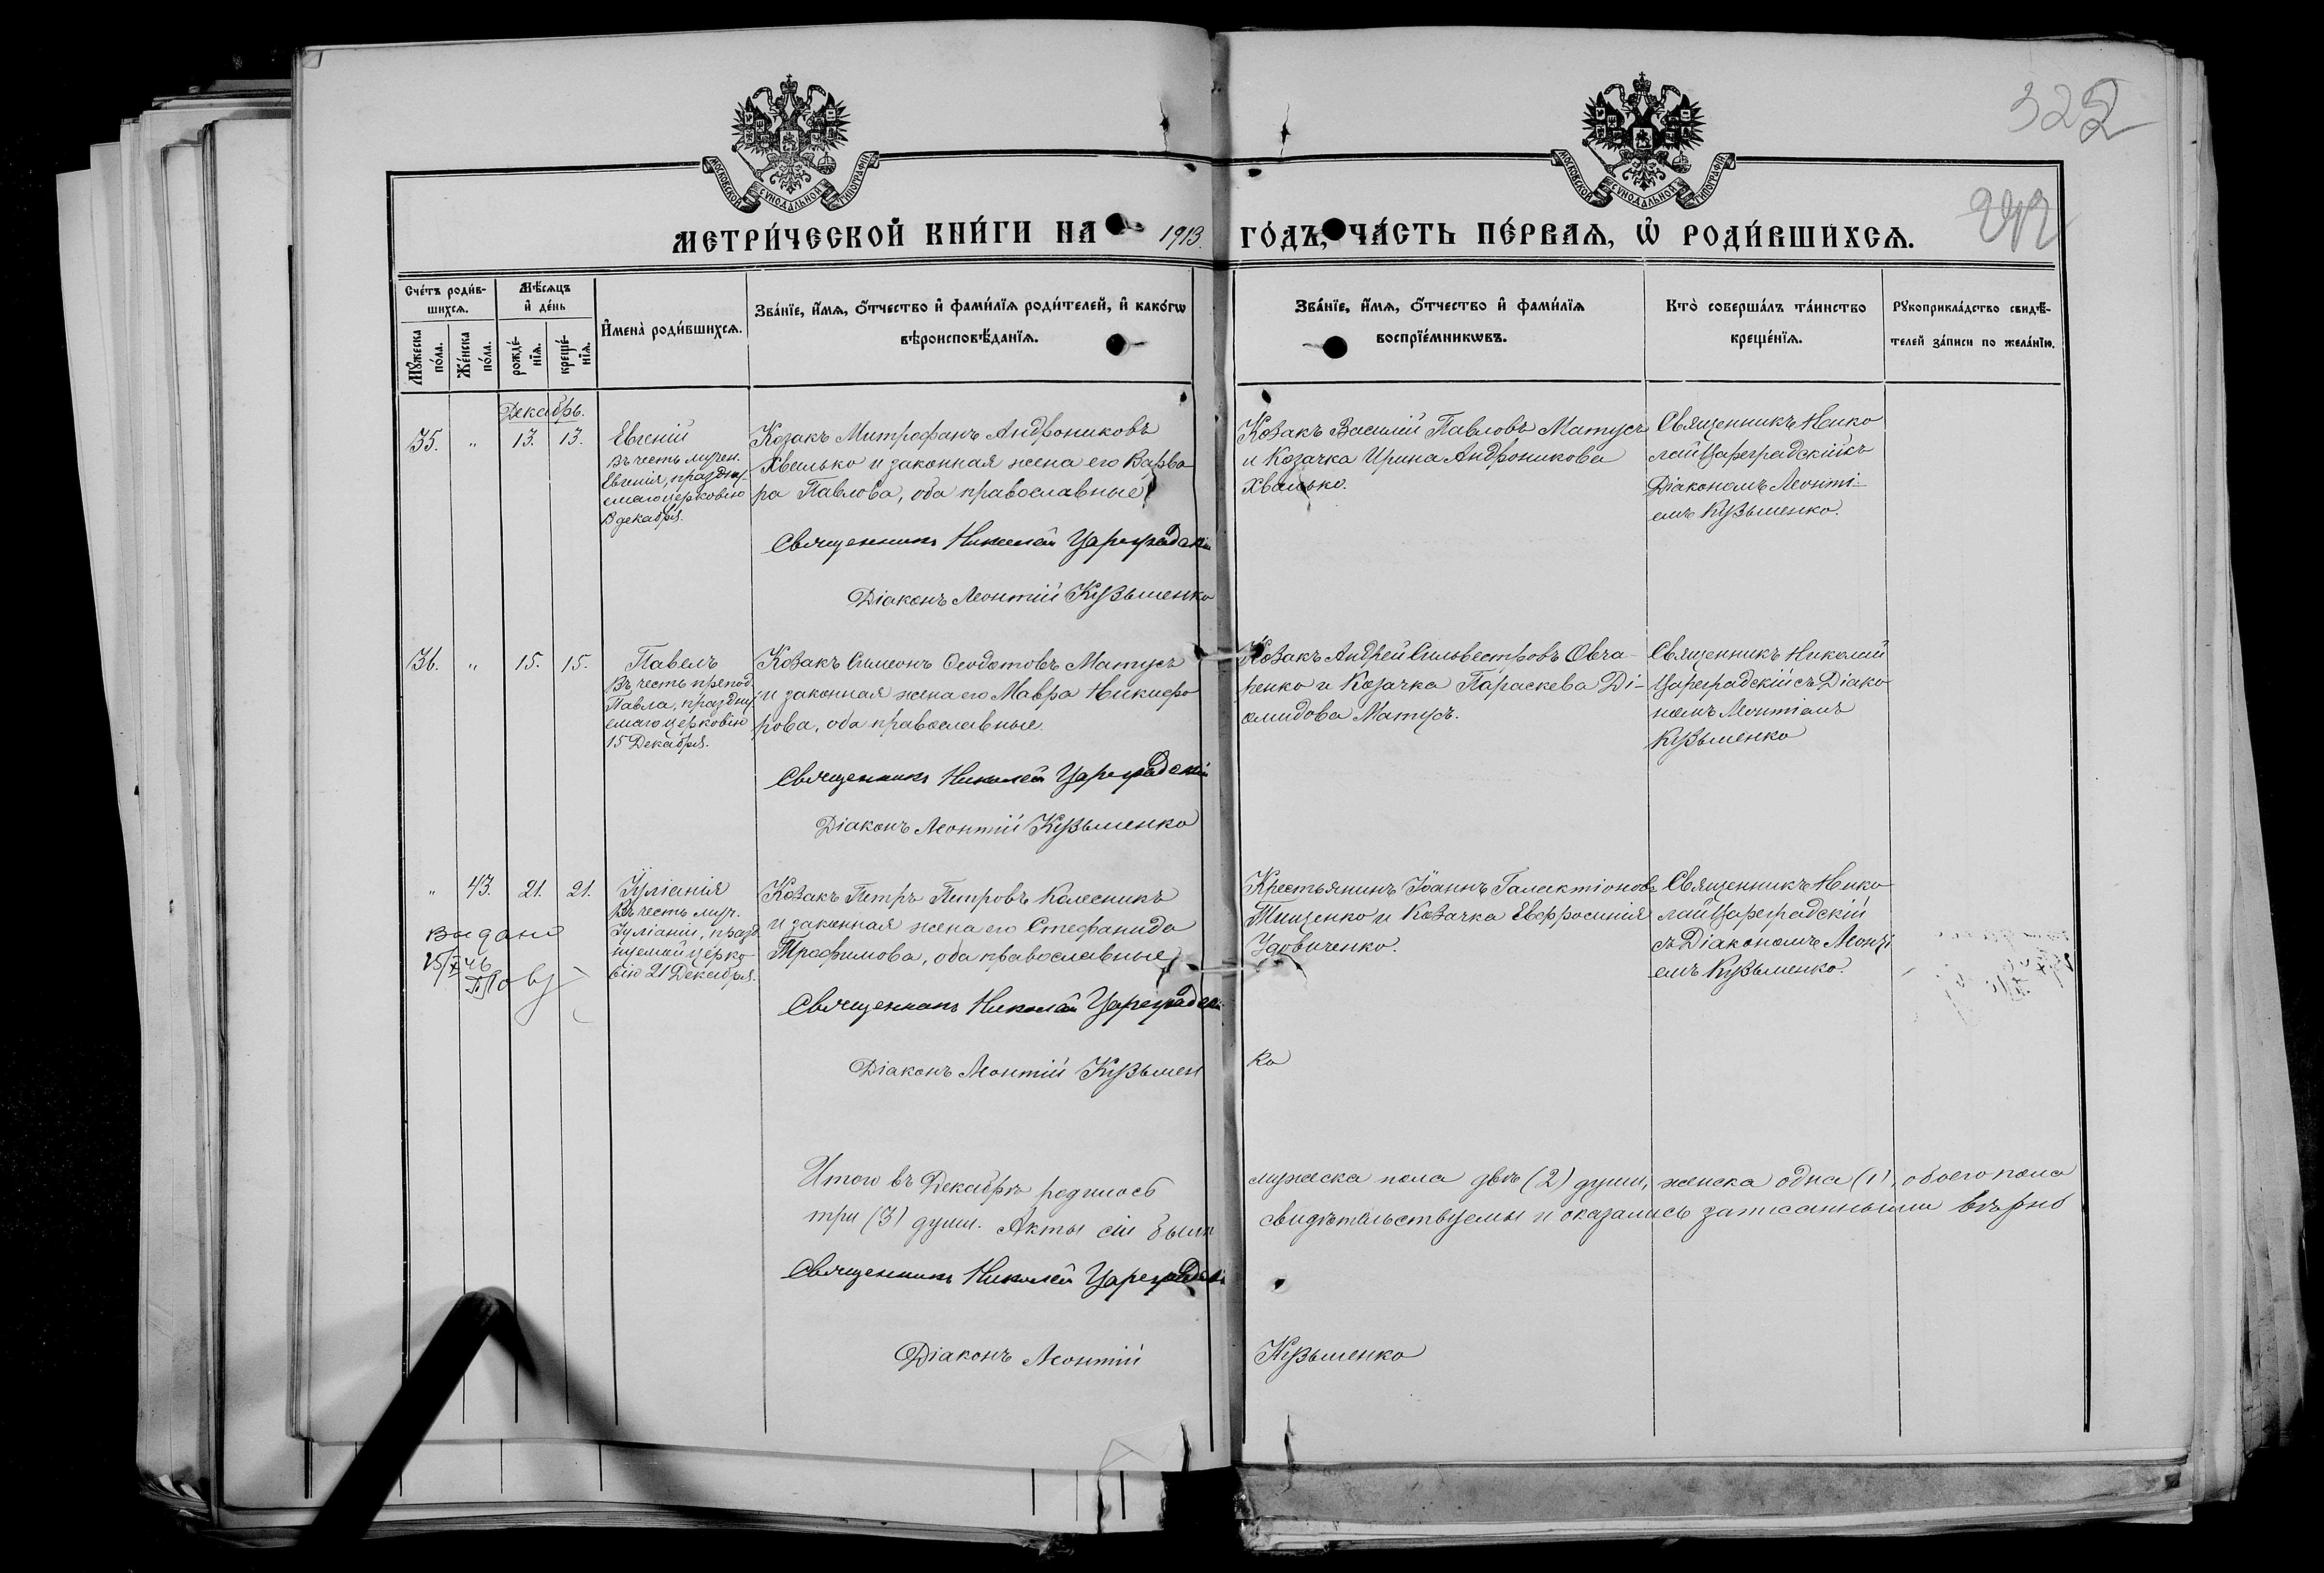 322
МОСКОВСКОЙ СѴНОДАЛЬНОЙ ТИПОГРАФІИ
МОСКОВСКОЙ СѴНОДАЛЬНОЙ ТИПОГРАФІИ
МЕТРИ́ЧЕСКОЙ КНИ́ГИ НА 1913. ГО́ДЪ, ЧА́СТЬ ПЕ́РВАѦ, Ѡ҆ РОДИ́ВШИХСѦ.
Сче́тъ роди́в-
шихсѧ.
Мꙋ́жеска по́ла.
Же́нска по́ла.
Мѣ́сѧцъ
и҆ де́нь
рожде́-
нїѧ.
креще́-
нїѧ.
И҆мена̀ роди́вшихсѧ.
Зва́нїе, и҆́мѧ, ѻ҆́тчество и҆ фами́лїѧ роди́телей, и҆ како́гѡ
вѣроисповѣ́данїѧ.
Зва́нїе, и҆́мѧ, ѻ҆́тчество и҆ фами́лїѧ
воспрїе́мникѡвъ.
Кто̀ соверша́лъ та́инство
креще́нїѧ.
Рꙋкоприкла́дство свидѣ́-
телей за́писи по жела́нїю.
Декабрь.
35. „ 13. 13.
Евгеній
Въ честь мучен.
Евгенія, праздну-
емаго церковію
13 декабря.
Козакъ Митрофанъ Андрониковъ
Хвалько и законная жена его Варва
ра Павлова, оба православные
Священникъ Николай Цареградскій
Діаконъ Леонтій Кузьменко
Козакъ Василій Павловъ Матусъ
и Козачка Ирина Андроникова
Хвалько.
Священникъ Нико
лай Цареградскій съ
Діакономъ Леонті-
емъ Кузьменко.
36. „ 15. 15.
Павелъ
Въ честь препод.
Павла, праздну
емаго церковію
15 Декабря.
Козакъ Симеонъ Ѳеодотовъ Матусъ
и законная жена его Мавра Никифо
рова, оба православные.
Священникъ Николай Цареградскій
Діаконъ Леонтій Кузьменко
Козакъ Андрей Сильвестровъ Овча-
ренко и Козачка Параскева Ді-
омидова Матусъ.
Священникъ Николай
Цареградскій съ Діако
номъ Леонтіемъ
Кузьменко
„ 43. 21. 21.
Іуліанія
Въ честь муч.
Іуліаніи, празд
нуемой церко
вію 21 Декабря.
Выдано
Козакъ Петръ Петровъ Колесникъ
и законная жена его Стефанида
Трофимова, оба православные
Священникъ Николай Цареградскій
Діаконъ Леонтій Кузьмен ко
Крестьянинъ Іоаннъ Галактіоновъ
Тищенко и Козачка Евфросинія
Удовиченко.
Священникъ Нико
лай Цареградскій
съ Діакономъ Леонті
емъ Кузьменко.
Итого въ Декабрѣ родилось мужеска пола двѣ (2) души, женска одна (1), обоего пола
три (3) души. Акты сіи были свидѣтельствуемы и оказались записанными вѣрно
Священникъ Николай Цареградскій
Діаконъ Леонтій Кузьменко